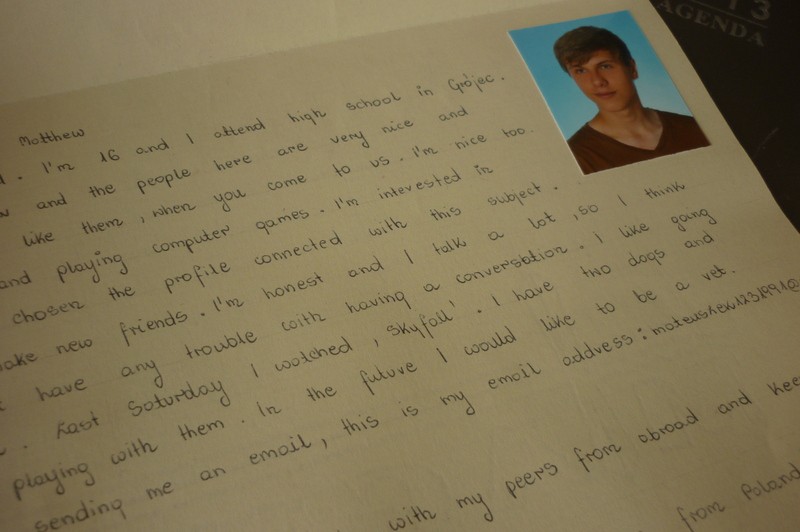 13
AGENDA
Matthew
I'm 16 and I attend high school in Grójec.
and the people here are very nice and
like them, when you come to us. I'm nice too.
and playing computer games. I'm interested in
chosen the profile connected with this subject.
new friends. I'm honest and I talk a lot, so I think
have any trouble with having a conversation. I like going
. Last Saturday I watched , Skyfall'. I have two dogs and
playing with them. In the future I would like to be a vet.
sending me an email, this is my email address: mateushek1231991@
with my peers from abroad and
from Poland